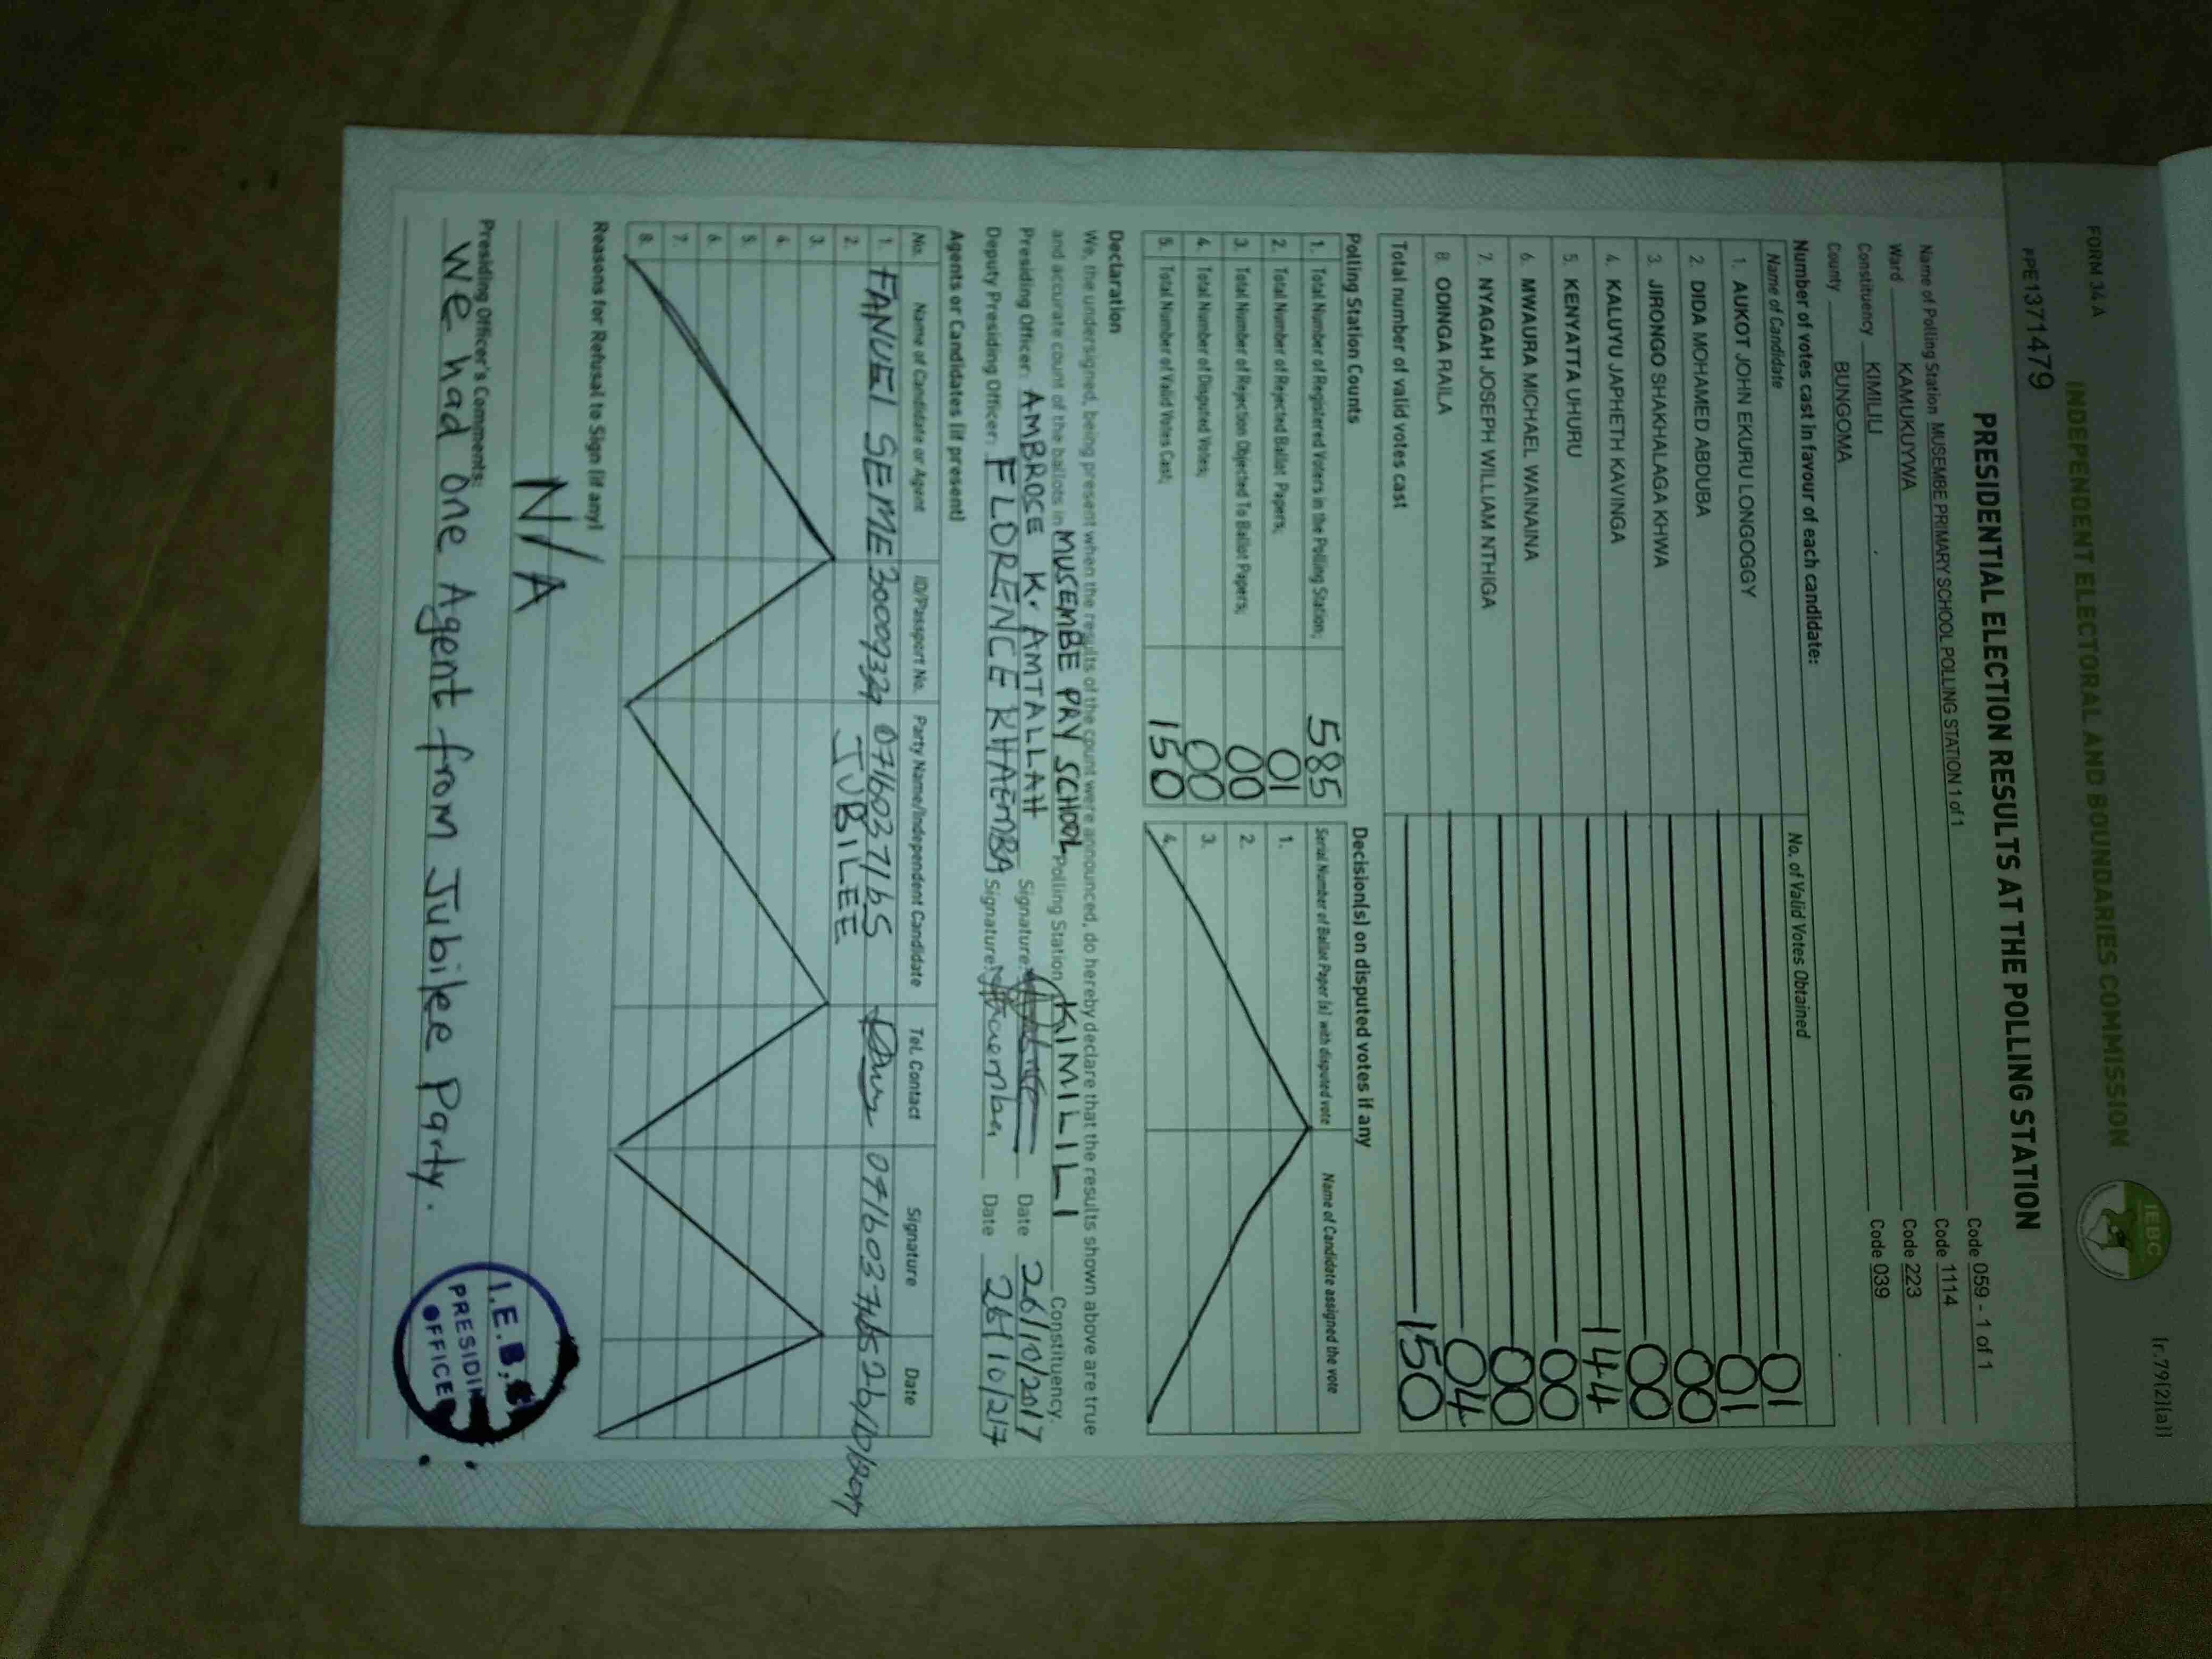 FORM 34A
(r.79(2)(a))
INDEPENDENT ELECTORAL AND BOUNDARIES COMMISSION
IEBC
PPE1371479
PRESIDENTIAL ELECTION RESULTS AT THE POLLING STATION
Name of Polling Station MUSEMBE PRIMARY SCHOOL POLLING STATION 1 of 1 Code 059 - 1 of 1
Ward KAMUKUYWA Code 1114
Constituency KIMILILI Code 223
County BUNGOMA Code 039
Number of votes cast in favour of each candidate:
Name of Candidate No. of Valid Votes Obtained
1. AUKOT JOHN EKURU LONGOGGY 01
2. DIDA MOHAMED ABDUBA 01
3. JIRONGO SHAKHALAGA KHWA 00
4. KALUYU JAPHETH KAVINGA 00
5. KENYATTA UHURU 144
6. MWAURA MICHAEL WAINAINA 00
7. NYAGAH JOSEPH WILLIAM NTHIGA 00
8. ODINGA RAILA 04
Total number of valid votes cast 150
Polling Station Counts
1. Total Number of Registered Voters in the Polling Station; 585
2. Total Number of Rejected Ballot Papers; 01
3. Total Number of Rejection Objected To Ballot Papers; 00
4. Total Number of Disputed Votes; 00
5. Total Number of Valid Votes Cast; 150
Decision(s) on disputed votes if any
Serial Number of Ballot Paper (s) with disputed vote Name of Candidate assigned the vote
1.
2.
3.
4.
Declaration
We, the undersigned, being present when the results of the count were announced, do hereby declare that the results shown above are true
and accurate count of the ballots in MUSEMBE PAY SCHOOL Polling Station KIMILILI Constituency.
Presiding Officer: AMBROSE K. AMTALLAH Signature: Date 26/10/2017
Deputy Presiding Officer: FLORENCE KHAEMBA Signature: Date 26/10/217
Agents or Candidates (if present)
No. Name of Candidate or Agent ID/Passport No. Party Name/Independent Candidate Tel. Contact Signature Date
1. FANUEL SEME 30009329 0716037165 0716037165 26/10/2017
2. JUBILEE
3.
4.
5.
6.
7.
8.
Reasons for Refusal to Sign (if any)
N/A
Presiding Officer's Comments:
We had one Agent from Jubilee Party.
I.E.B.C
PRESIDING
OFFICER